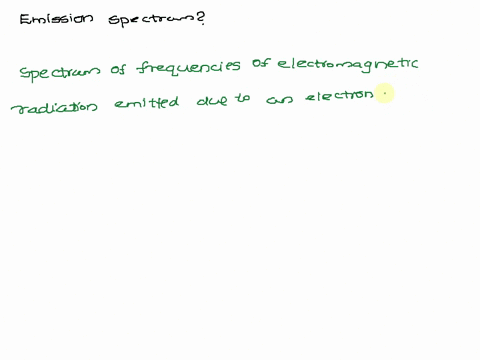 Emission spectrum?
Spectrum of frequencies of electromagnetic
radiation emitted due to an electron